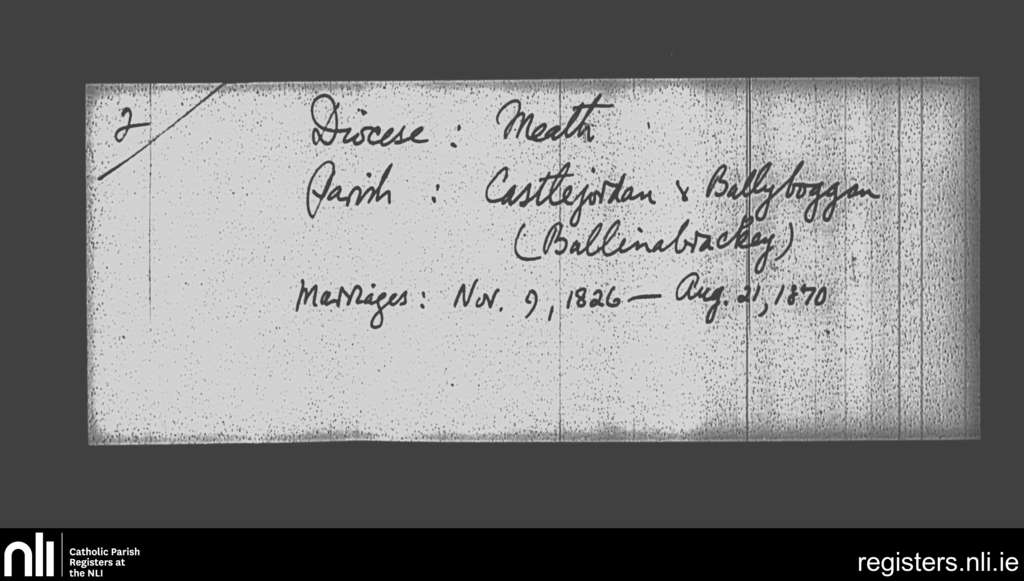 2
Diocese : Meath
Parish : Castlejordan & Ballyboggan
(Ballinabrackey)
Marriages : Nov. 9, 1826 — Aug. 21, 1870
nli
Catholic Parish
Registers at
the NLI
registers.nli.ie